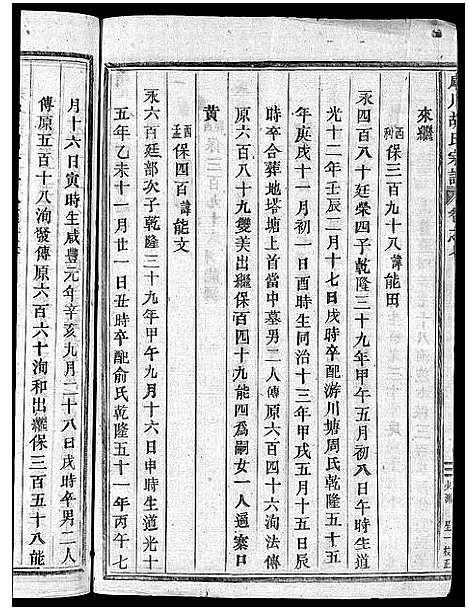 川胡氏宗譜
來繼
酉利保三百九十八諱能田
永四百八十廷榮四子乾隆三十九年甲午五月初八日午時生道
光十二年壬辰二月十七日戌時卒配游川塘周氏乾隆五十五
年庚戌十一月初一日酉時生同治十三年甲戌五月十五日辰
時卒合葬地塔塘上首當中墓男二人傳原六百四十六洵法傳
原六百八十九雙美出繼保百四十九能四爲嗣女一人適寨口
黃
酉孟保四百諱能文
永六百廷部次子乾隆三十九年甲午九月十六日申時生道光十
五年乙未十一月廿一日丑時卒配俞氏乾隆五十一年丙午七
月十六日寅時生咸豐元年辛亥九月二十八日戌時卒男二人
傳原五百十八洵發傳原六百六十洵和出繼保三百五十八能